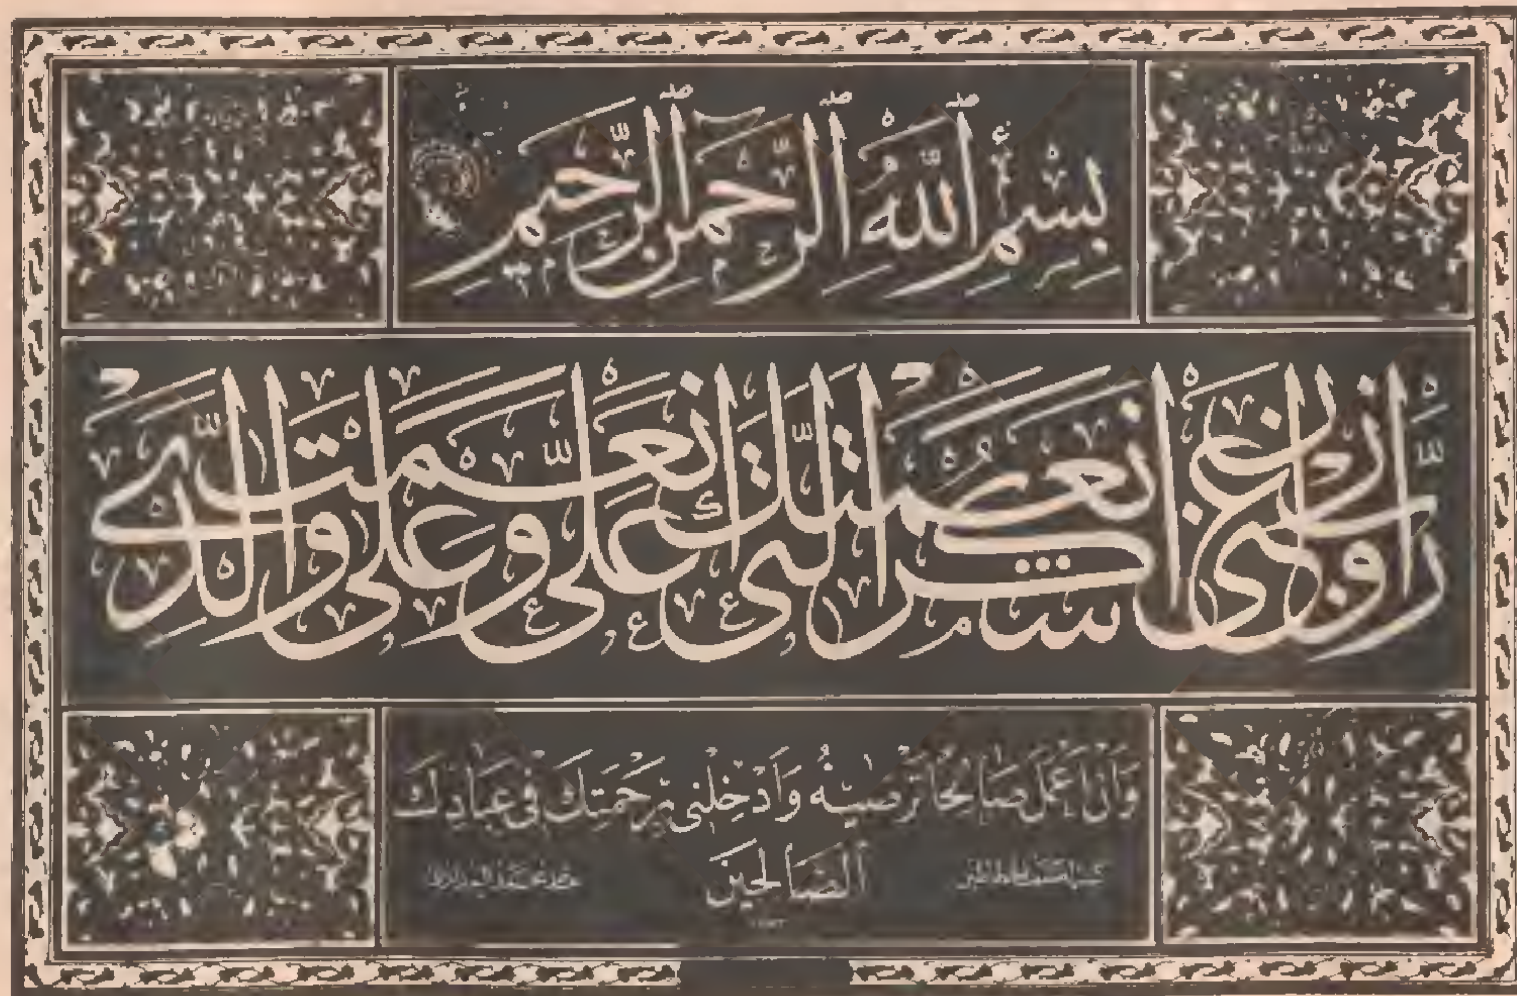 بِسْمِ ٱللَّهِ ٱلرَّحْمَٰنِ ٱلرَّحِيمِ
رَبِّ أَوْزِعْنِي أَنْ أَشْكُرَ نِعْمَتَكَ الَّتِي أَنْعَمْتَ عَلَيَّ وَعَلَى وَالِدَيَّ
وَاَنْ اَعْمَلَ صَالِحًا تَرْضٰیهُ وَاَدْخِلْنی بِرَحْمَتِكَ فی عِبَادِكَ
ٱلصَّالِحِینَ